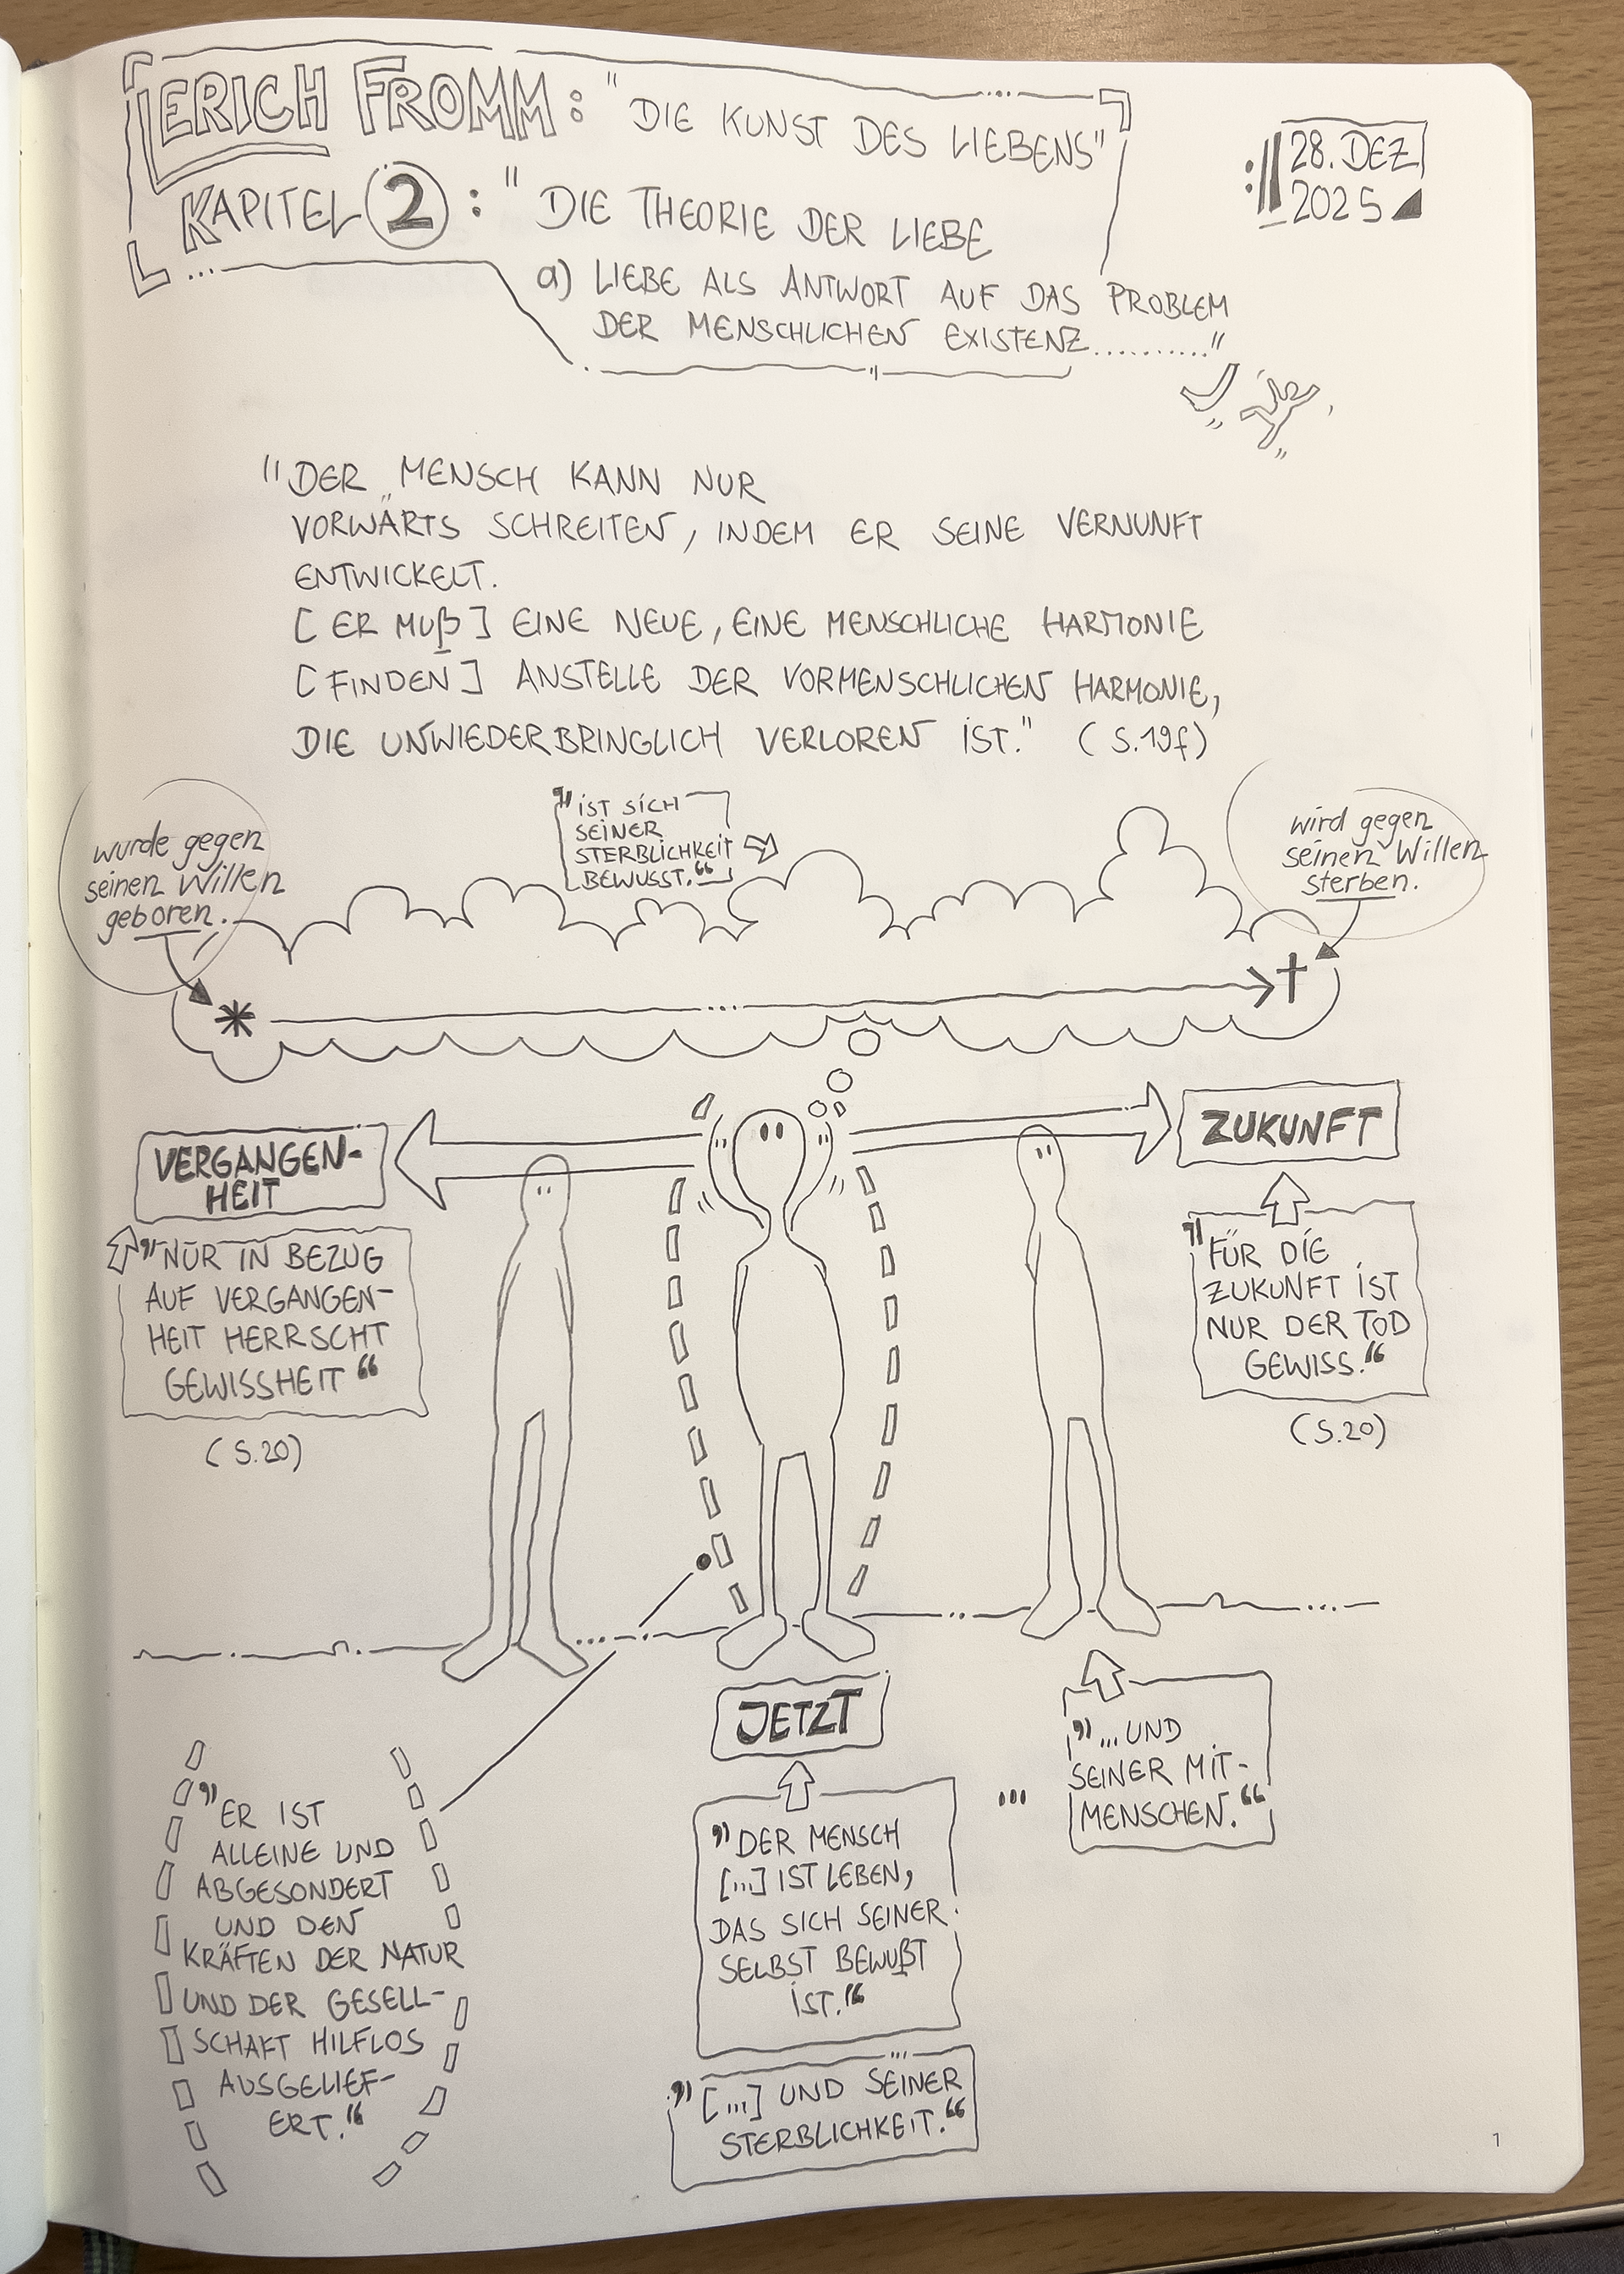 ERICH FROMM: "DIE KUNST DES LIEBENS"
KAPITEL 2: "DIE THEORIE DER LIEBE
a) LIEBE ALS ANTWORT AUF DAS PROBLEM
DER MENSCHLICHEN EXISTENZ.........."
28. DEZ
2025
"DER MENSCH KANN NUR
VORWÄRTS SCHREITEN, INDEM ER SEINE VERNUNFT
ENTWICKELT.
[ER MUß] EINE NEUE, EINE MENSCHLICHE HARMONIE
[FINDEN] ANSTELLE DER VORMENSCHLICHEN HARMONIE,
DIE UNWIEDERBRINGLICH VERLOREN IST." (S.19f)
wurde gegen
seinen Willen
geboren.
"IST SICH
SEINER
STERBLICHKEIT
BEWUSST."
wird gegen
seinen Willen
sterben.
* ... †
VERGANGEN-
HEIT
ZUKUNFT
"NUR IN BEZUG
AUF VERGANGEN-
HEIT HERRSCHT
GEWISSHEIT"
(S.20)
"FÜR DIE
ZUKUNFT IST
NUR DER TOD
GEWISS."
(S.20)
JETZT
"DER MENSCH
[...] IST LEBEN,
DAS SICH SEINER
SELBST BEWUßT
IST."
...
"...UND
SEINER MIT-
MENSCHEN."
"[...] UND SEINER
STERBLICHKEIT."
"ER IST
ALLEINE UND
ABGESONDERT
UND DEN
KRÄFTEN DER NATUR
UND DER GESELL-
SCHAFT HILFLOS
AUSGELIEF-
ERT."
1